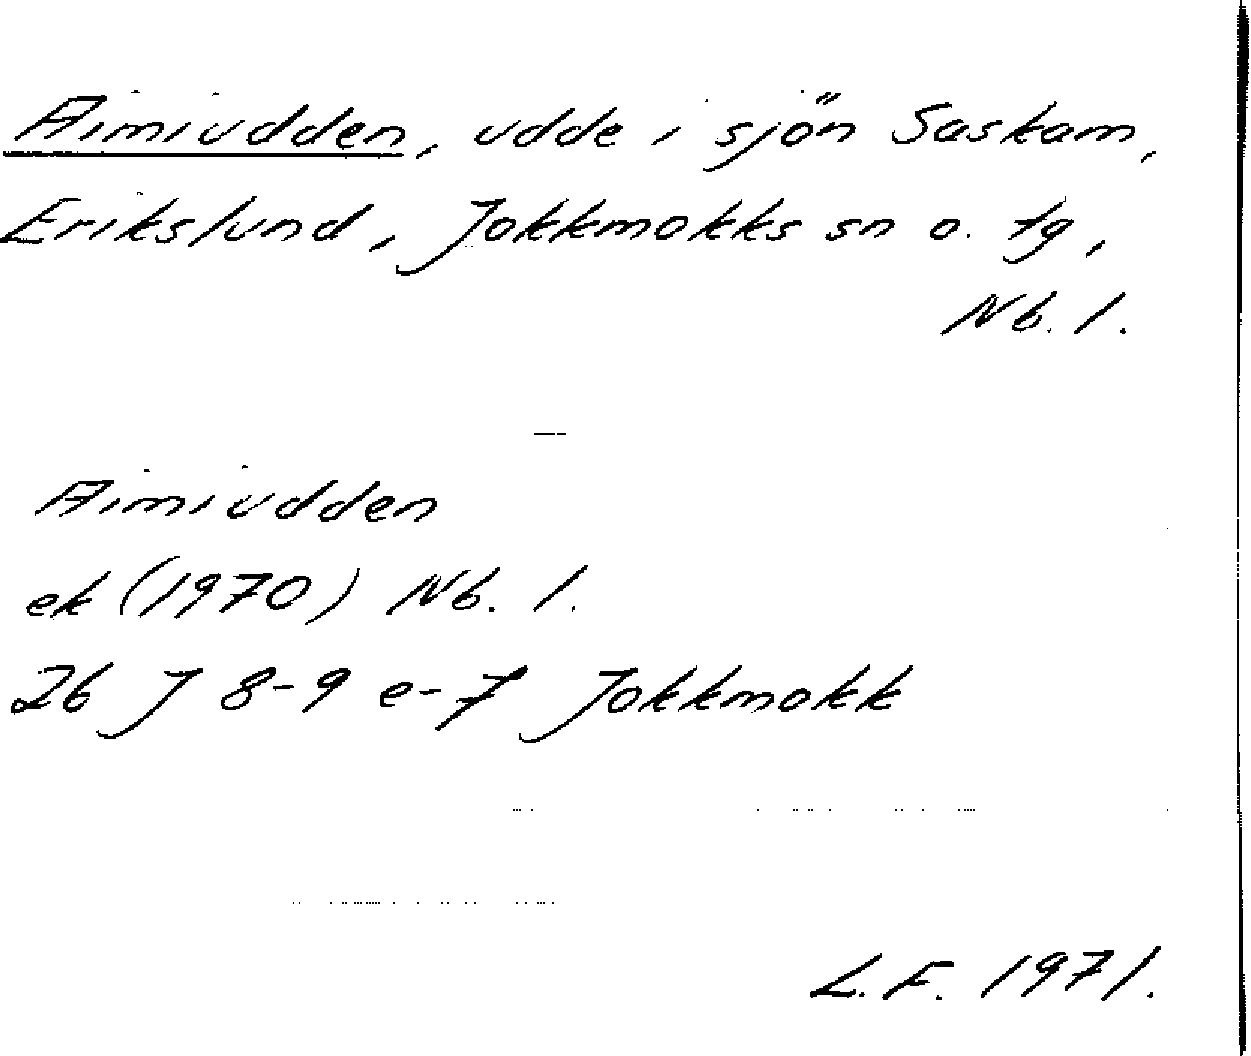 Aimiudden, udde i sjön Saskam,
Erikslund, Jokkmokks sn o. tg,
Nb. l.
Aimiudden
ek (1970) Nb. l.
26 J 8-9 e-f Jokkmokk
L.F. 1971.